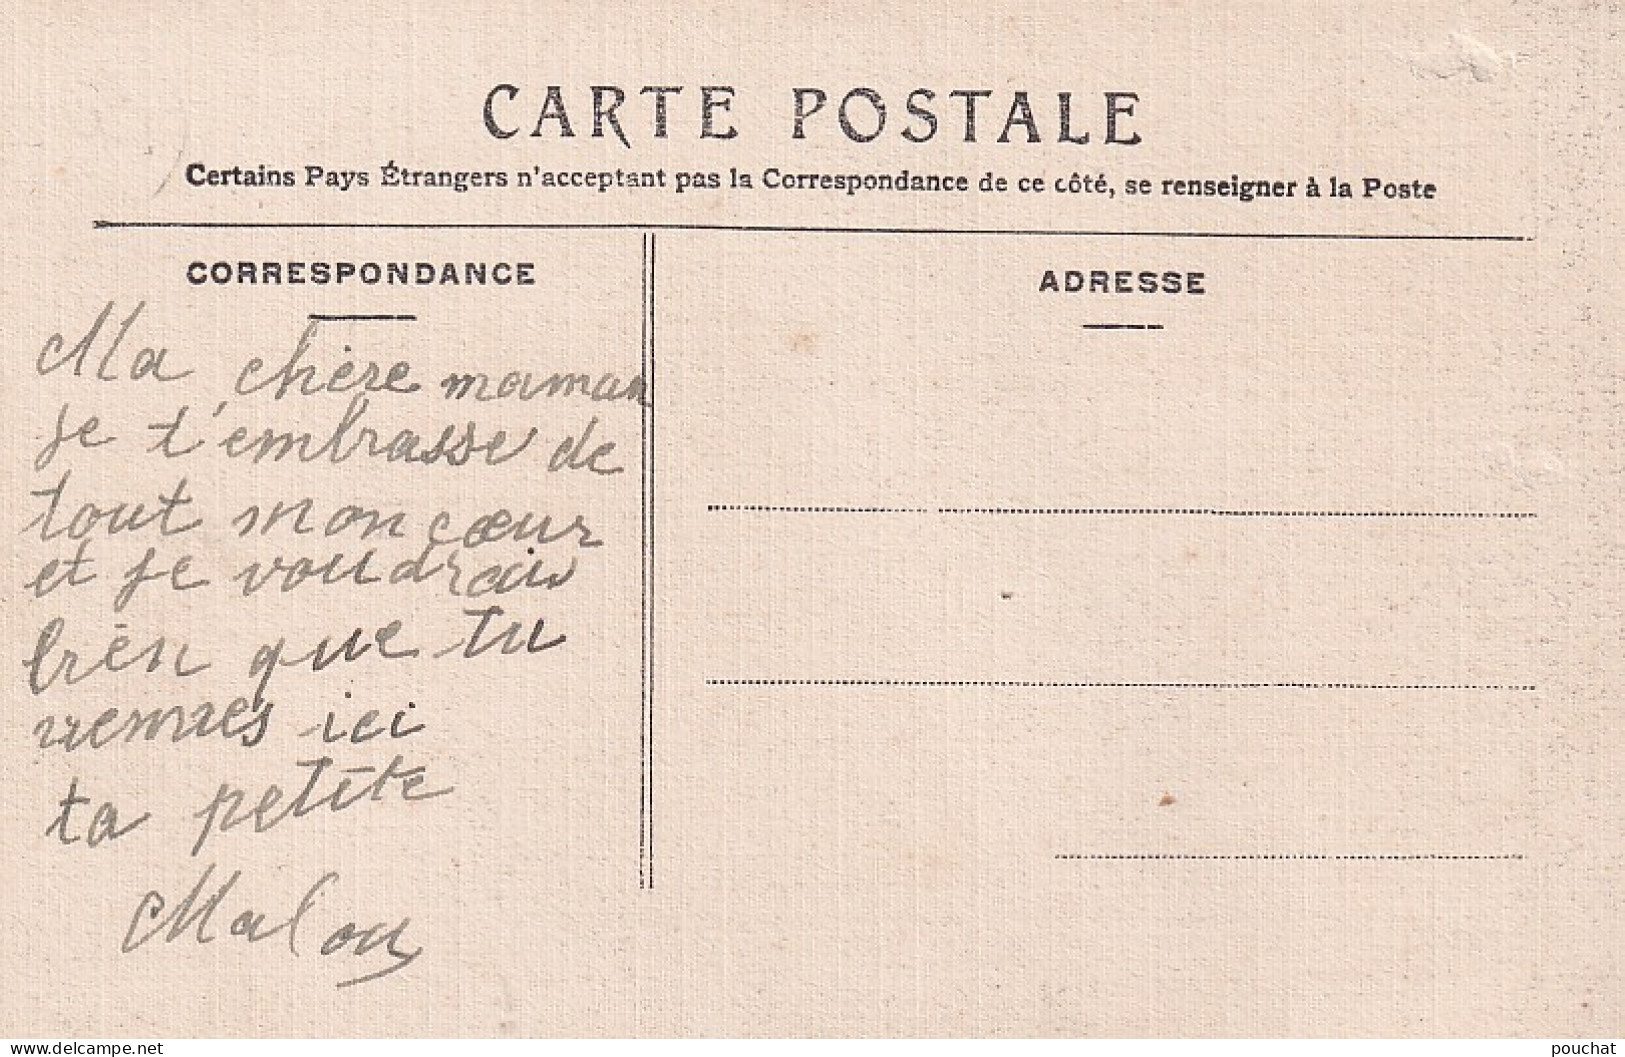 CARTE POSTALE
Certains Pays Étrangers n'acceptant pas la Correspondance de ce côté, se renseigner à la Poste
CORRESPONDANCE
Ma chère maman
je t'embrasse de
tout mon cœur
et je voudrais
bien que tu
viennes ici
ta petite
Malou
ADRESSE
www.delcampe.net
pouchat